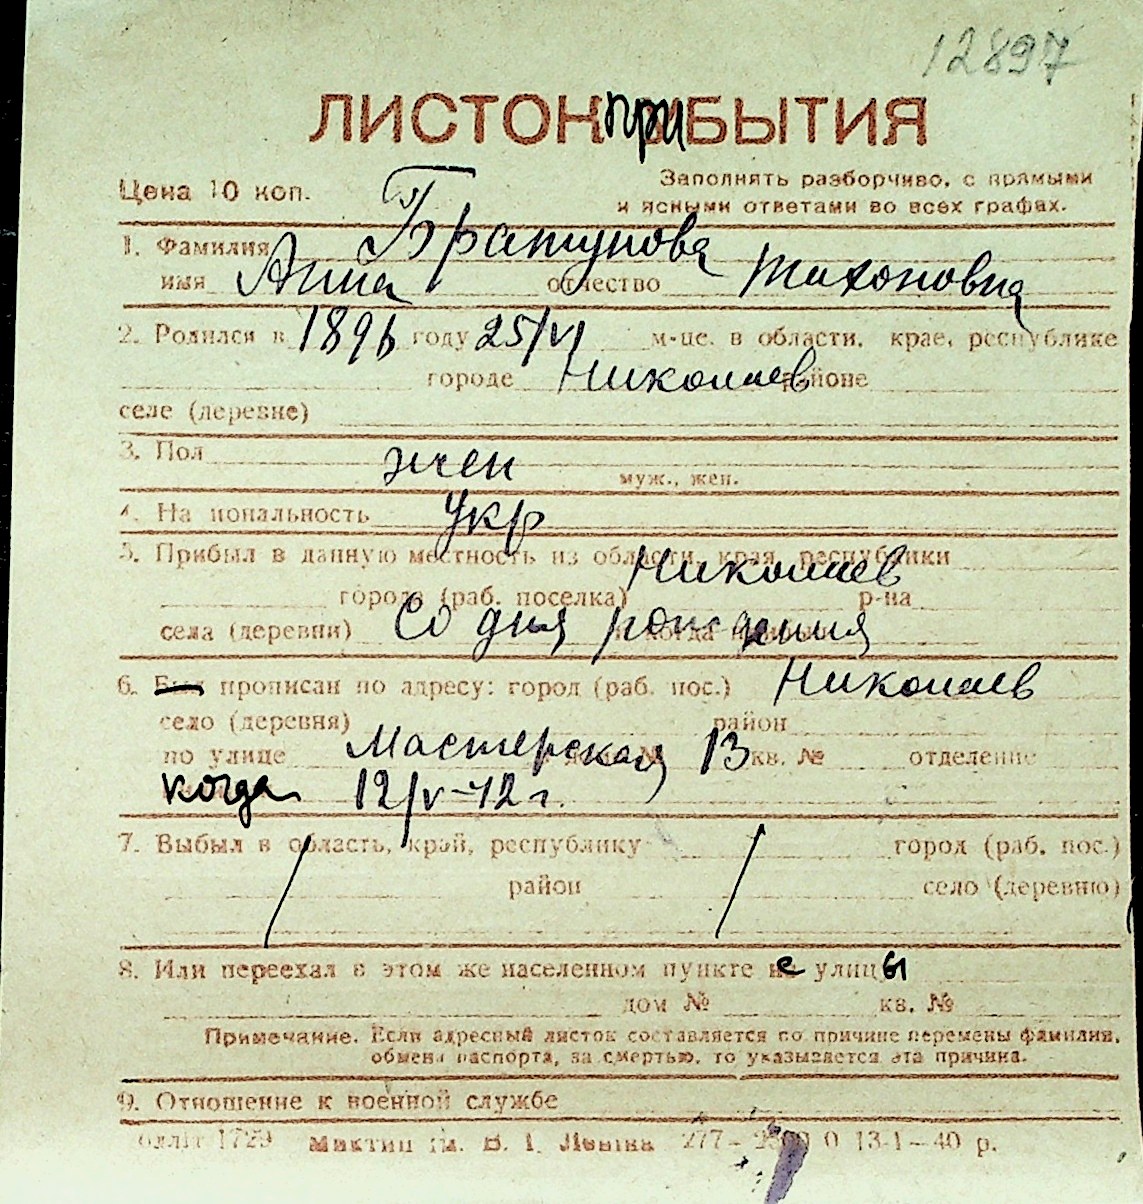 12897
ЛИСТОК при БЫТИЯ
Цена 10 коп.
Заполнять разборчиво, с прямыми
и ясными ответами во всех графах.
1. Фамилия Братунова
имя Анна отчество Тихоновна
2. Родился в 1896 году 25/VI м-це, в области, крае, республике
городе Николаев районе
селе (деревне)
3. Пол жен
муж., жен.
4. На иональность Укр
5. Прибыл в данную местность из области, края, республики
Николаев
города (раб. поселка) р-на
села (деревни) Со дня рождения
6. Был прописан по адресу: город (раб. пос.) Николаев
село (деревня) район
по улице Мастерская 13 кв. № отделение
когда 12/V-42 г.
7. Выбыл в область, край, республику город (раб. пос.)
район село (деревню)
8. Или переехал в этом же населенном пункте с улицы
дом № кв. №
Примечание. Если адресный листок составляется по причине перемены фамилии,
обмена паспорта, за смертью, то указывается эта причина.
9. Отношение к военной службе
1729 им. В. І. Леніна 277- 0 13-1-40 р.